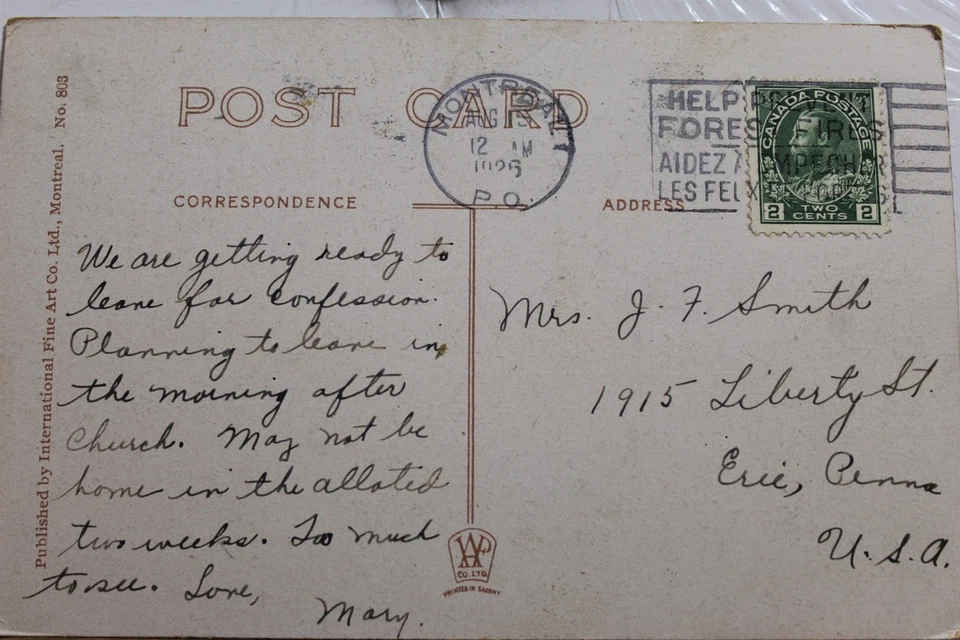 POST CARD
MONTREAL
AUG 15
12 AM
1926
P.O.
HELP PREVENT
FOREST FIRES
AIDEZ A EMPECHER
LES FEUX
CANADA POSTAGE
2 TWO CENTS 2
CORRESPONDENCE
ADDRESS
We are getting ready to
leave for confession.
Planning to leave in
the morning after
Church. May not be
home in the alloted
two weeks. Too much
to see. Love,
Mary.
Mrs. J. F. Smith
1915 Liberty St.
Erie, Penna
U.S.A.
CO. LTD.
PRINTED IN SAXONY
Published by International Fine Art Co. Ltd., Montreal. No. 803